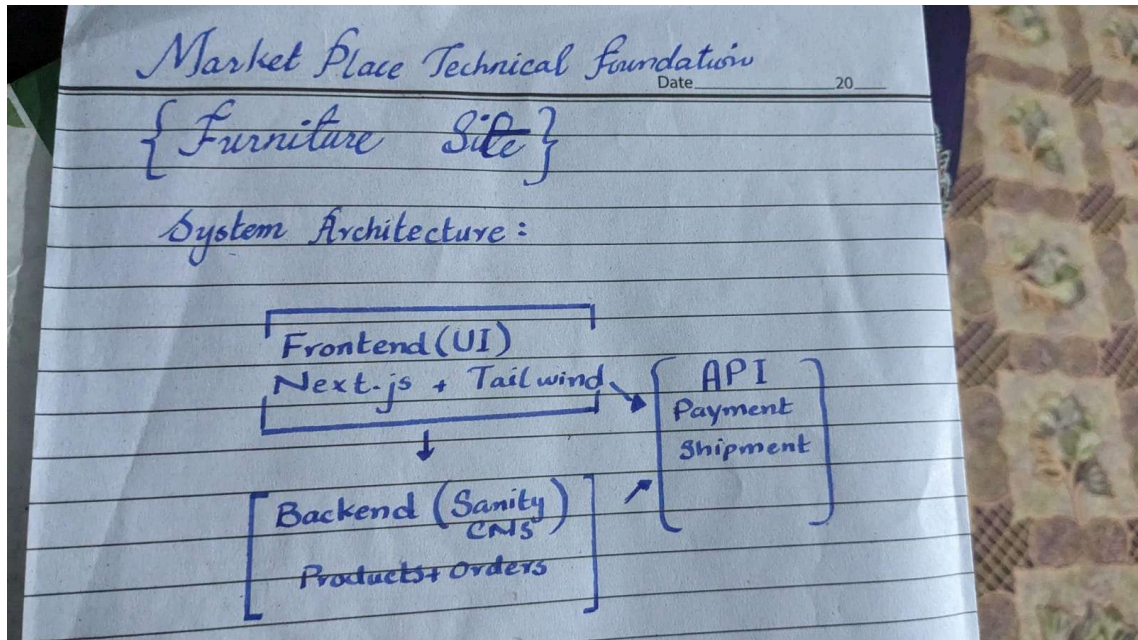 Market Place Technical foundation
Date 20
{ Furniture Site }
System Architecture :
Frontend (UI)
Next.js + Tailwind
API
Payment
Shipment
Backend (Sanity
CMS )
Products + Orders